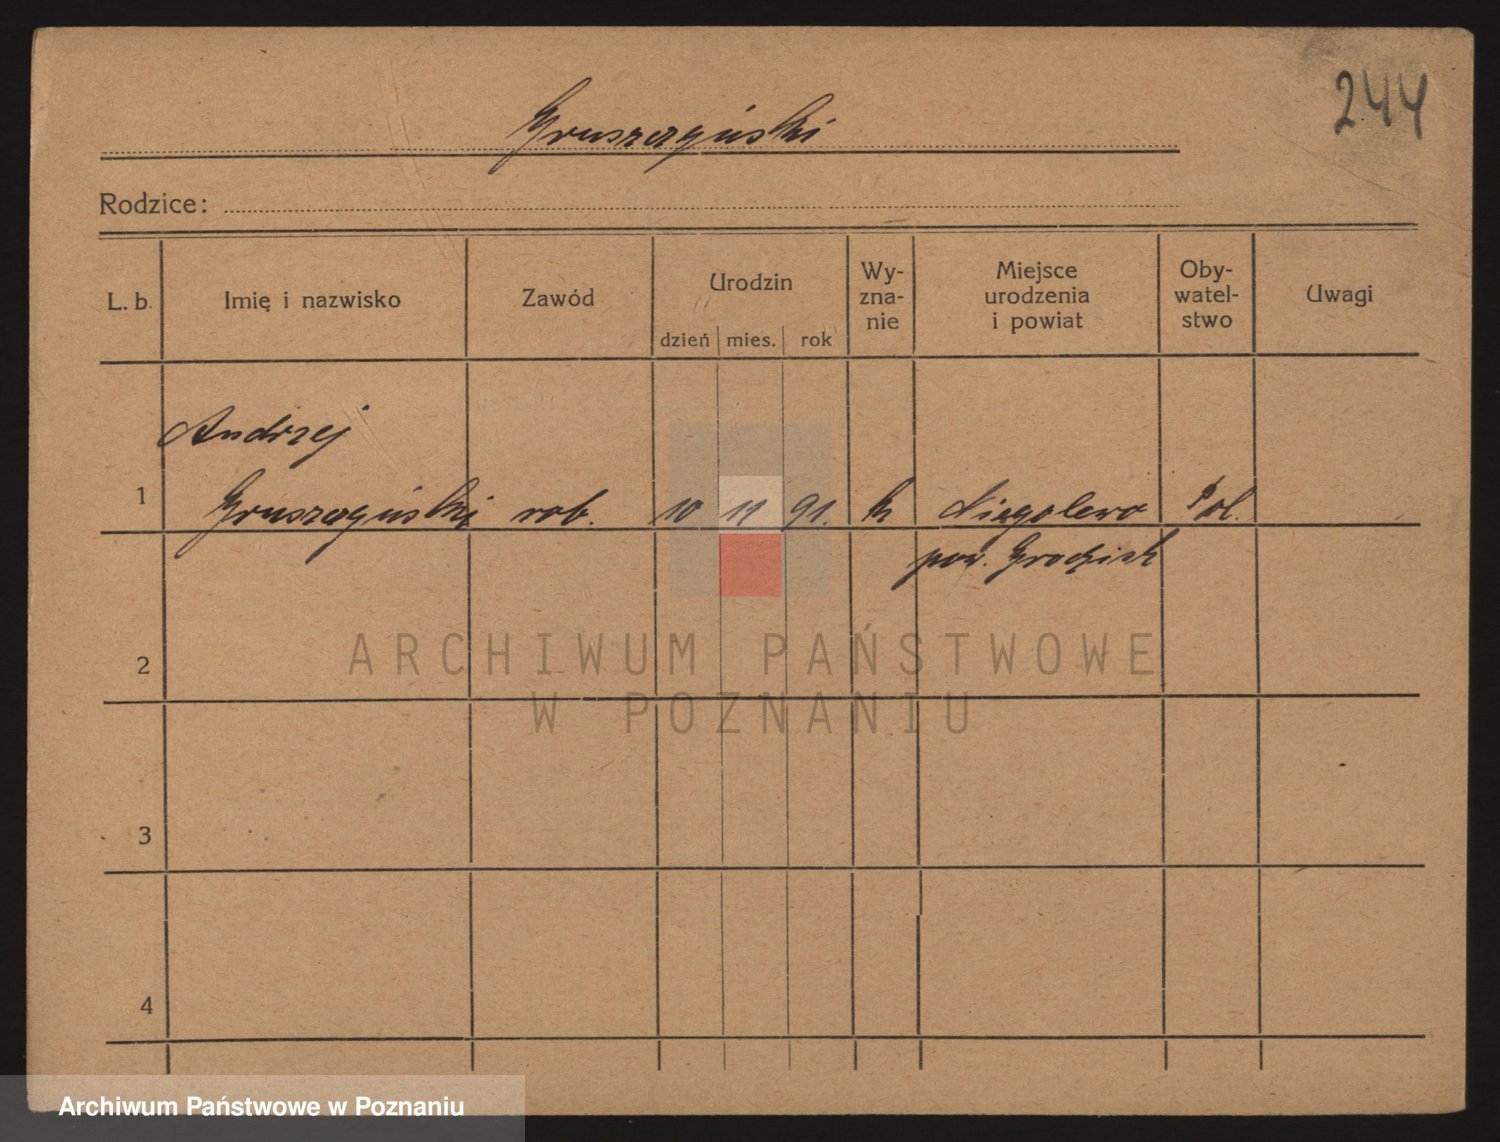 244
Gruszczyński
Rodzice:
L. b.
Imię i nazwisko
Zawód
Urodzin
dzień mies. rok
Wy-
zna-
nie
Miejsce
urodzenia
i powiat
Oby-
watel-
stwo
Uwagi
1
Andrzej
Gruszczyński rob. 10 11 91. k Niegolewo Pol.
pow. Grodzisk
2
3
4
ARCHIWUM PAŃSTWOWE
W POZNANIU
Archiwum Państwowe w Poznaniu